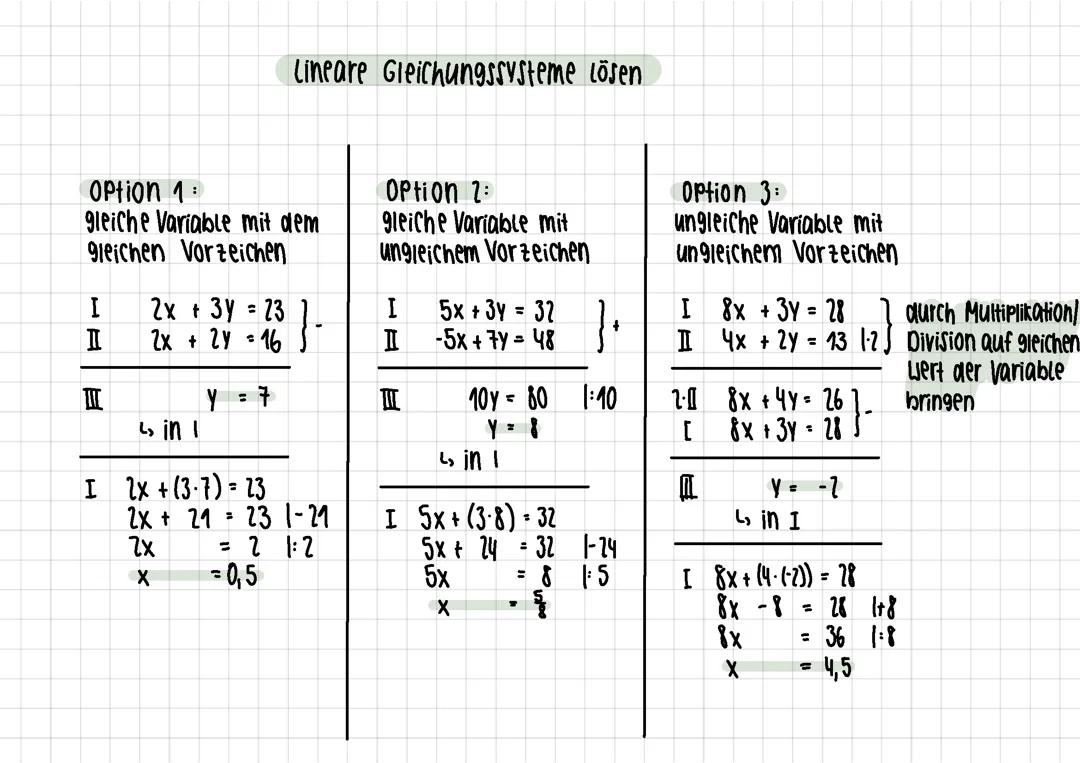 Lineare Gleichungssysteme lösen
Option 1:
gleiche Variable mit dem
gleichen Vorzeichen
I 2x + 3y = 23
II 2x + 2y = 16 } -
III y = 7
↳ in I
I 2x + (3·7) = 23
2x + 21 = 23 |-21
2x = 2 |:2
x = 0,5
Option 2:
gleiche Variable mit
ungleichem Vorzeichen
I 5x + 3y = 32
II -5x + 7y = 48 } +
III 10y = 80 |:10
y = 8
↳ in I
I 5x + (3·8) = 32
5x + 24 = 32 |-24
5x = 8 |:5
x = 5/8
Option 3:
ungleiche Variable mit
ungleichem Vorzeichen
I 8x + 3y = 28
II 4x + 2y = 13 |·2 }
durch Multiplikation/
Division auf gleichen
Wert der Variable
bringen
2·II 8x + 4y = 26
I 8x + 3y = 28 } -
III y = -2
↳ in I
I 8x + (4·(-2)) = 28
8x - 8 = 28 |+8
8x = 36 |:8
x = 4,5